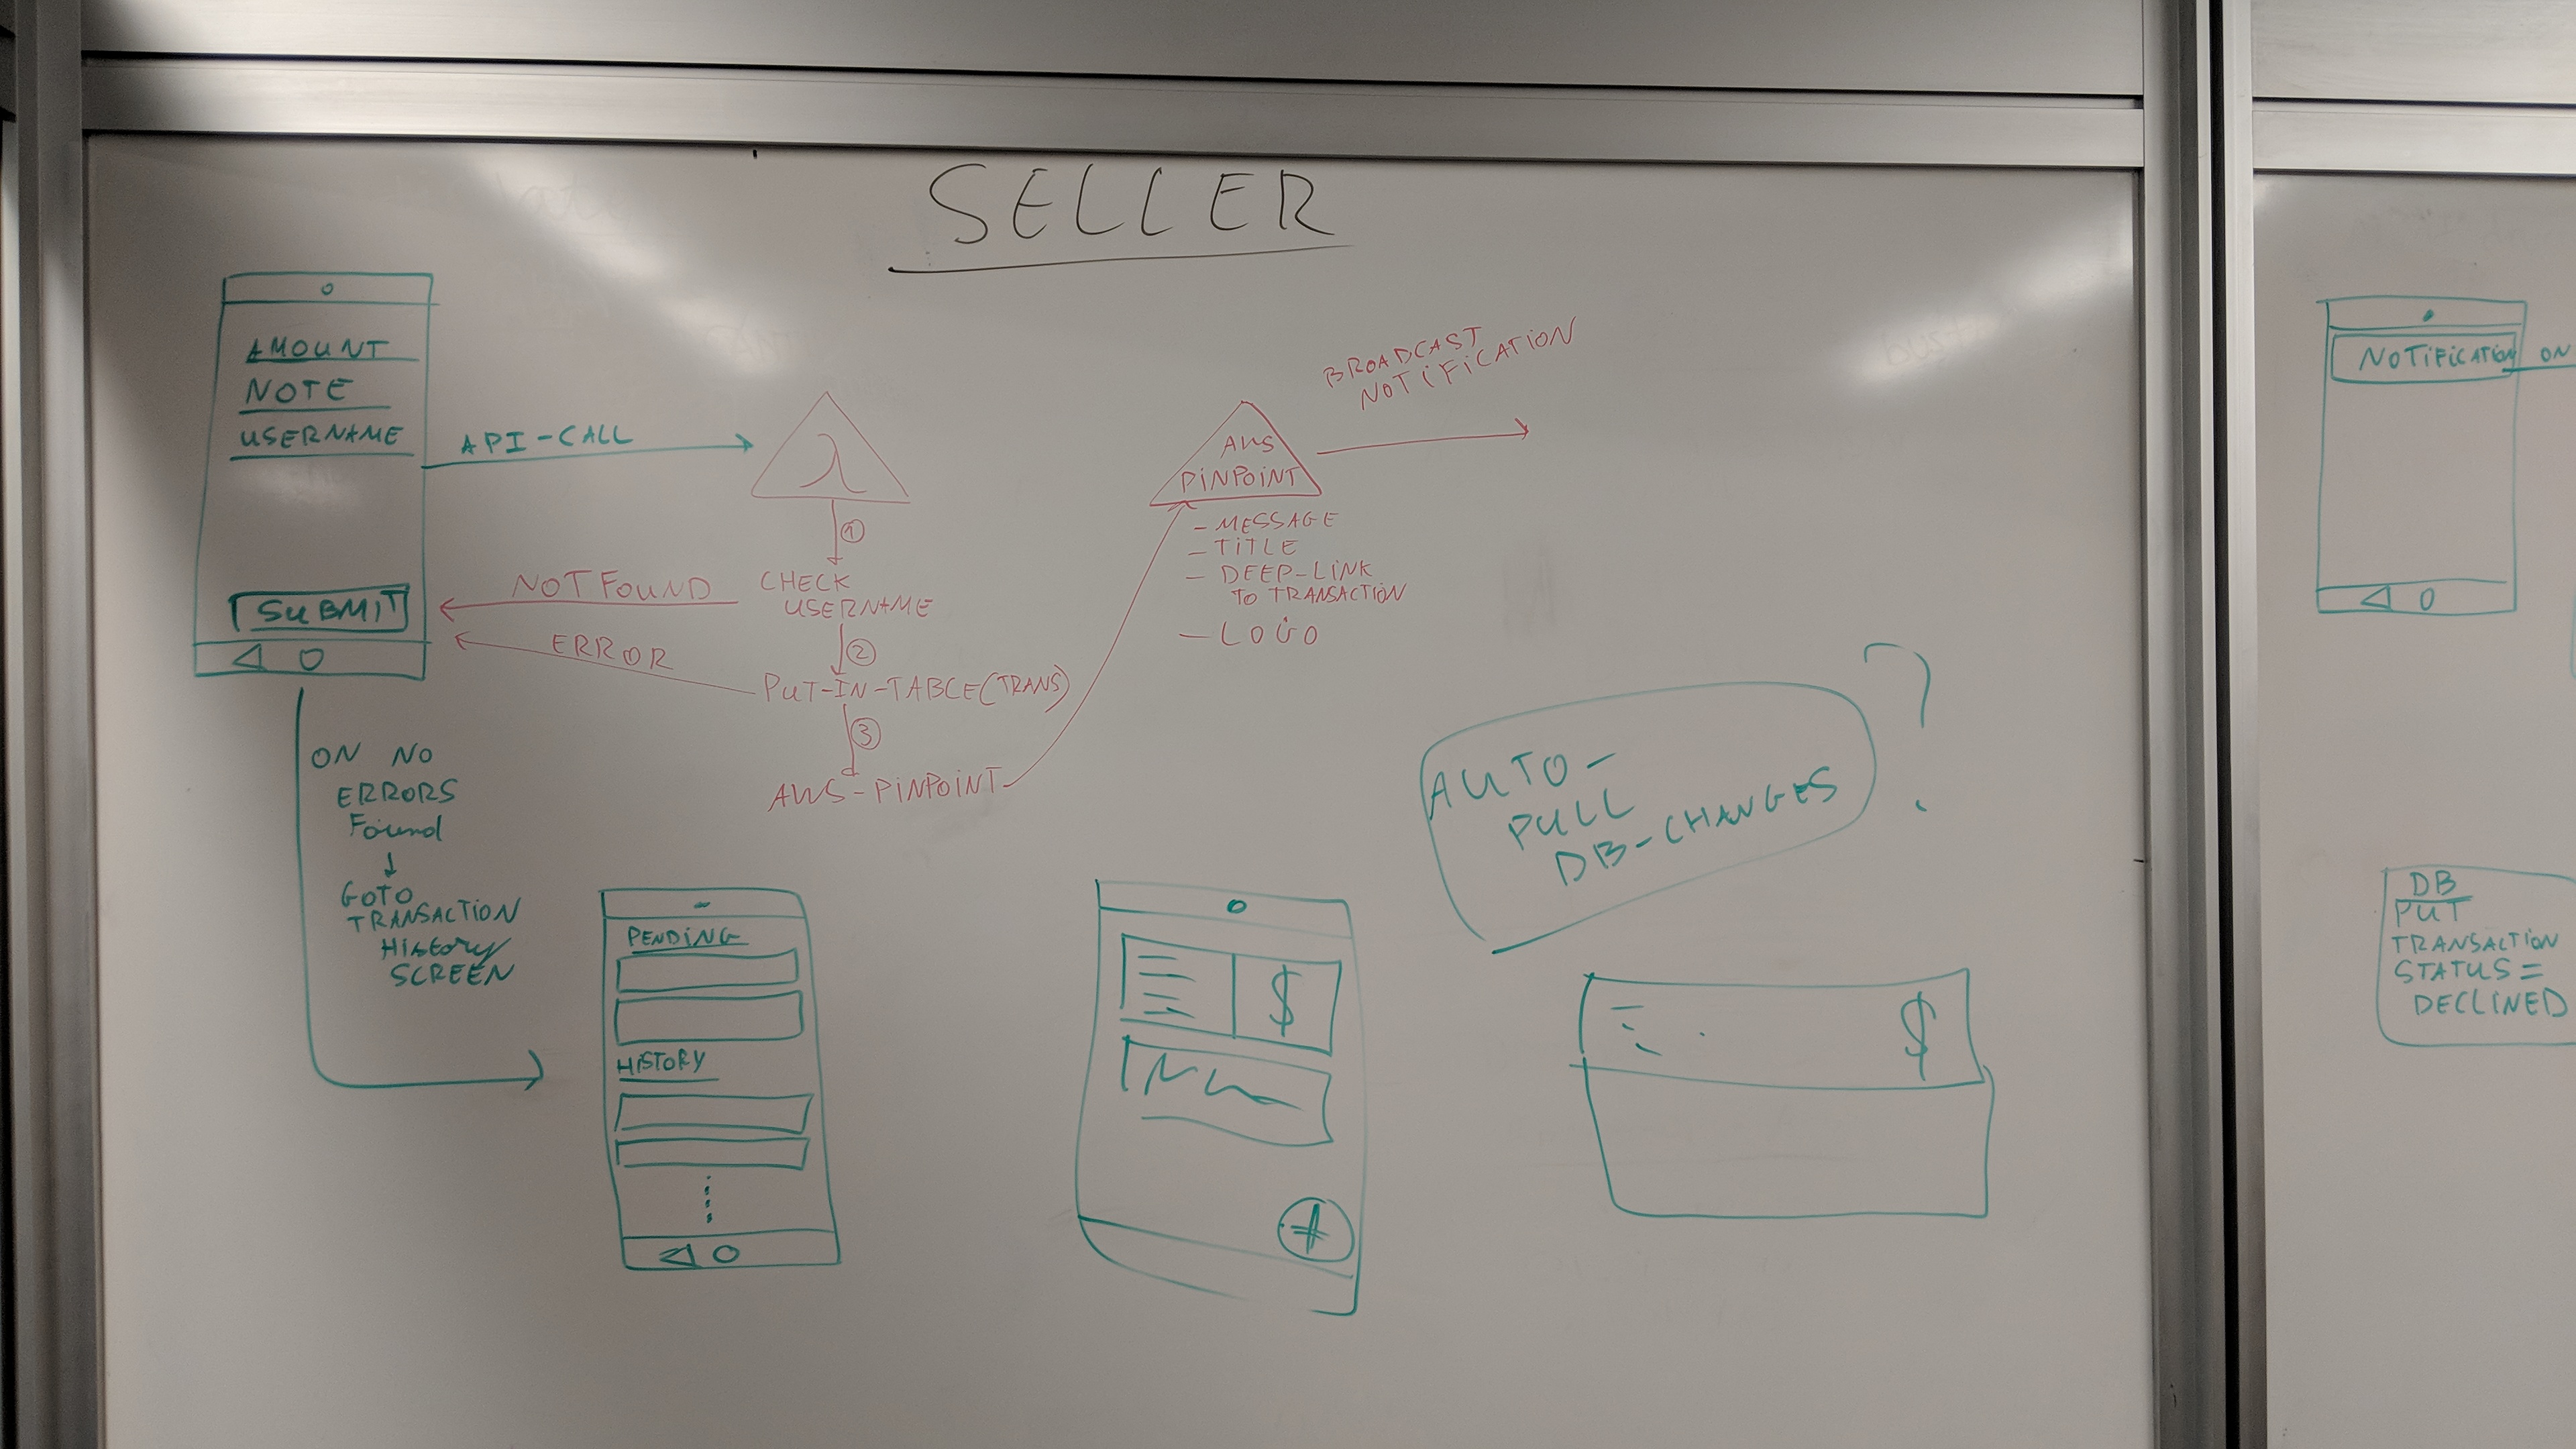 SELLER
AMOUNT
NOTE
USERNAME
SUBMIT
API-CALL
λ
1
CHECK
USERNAME
NOT FOUND
2
PUT-IN-TABLE(TRANS)
ERROR
3
AWS-PINPOINT
AWS
PINPOINT
- MESSAGE
- TITLE
- DEEP-LINK
TO TRANSACTION
- LOGO
BROADCAST
NOTIFICATION
ON NO
ERRORS
Found
GOTO
TRANSACTION
HIStory
SCREEN
PENDING
HISTORY
$
+
AUTO-
PULL
DB-CHANGES
?
$
NOTIFICATION ON
DB
PUT
TRANSACTION
STATUS =
DECLINED